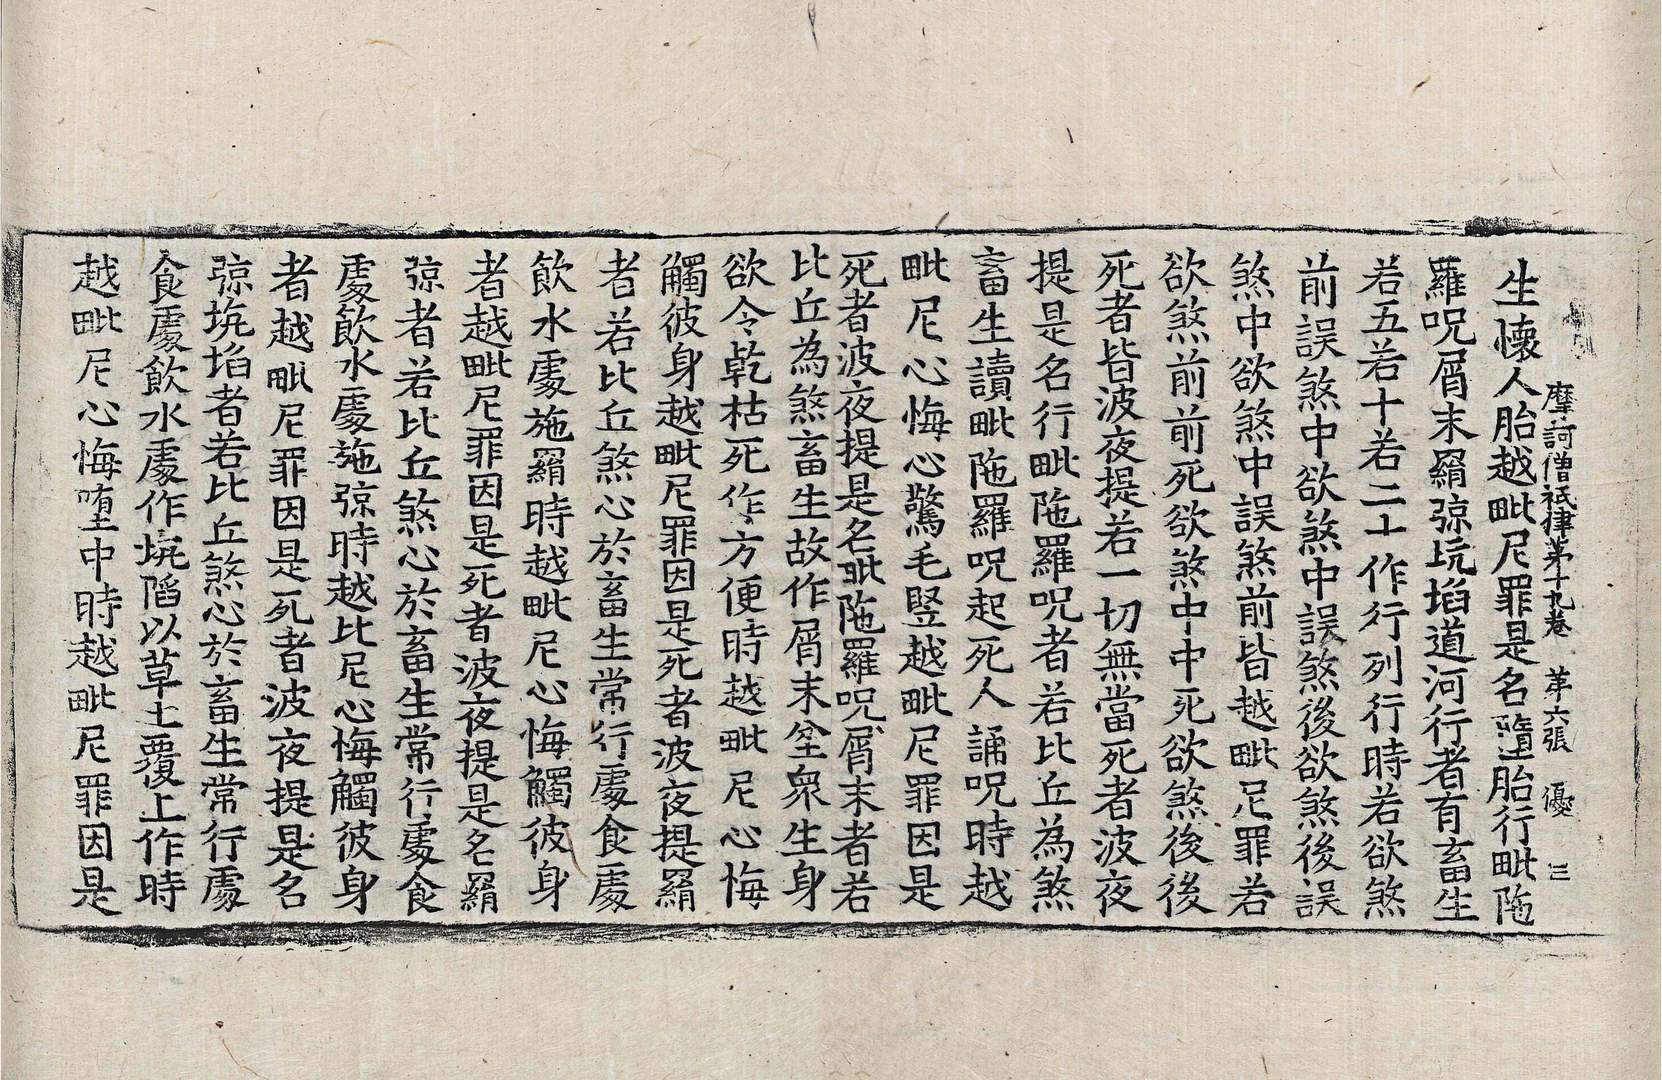 摩訶僧祇律第十九卷　第六張　優　三
生懷人胎越毗尼罪是名墮胎行毗陁
羅呪屑末羂弶坑埳道河行者有畜生
若五若十若二十作行列行時若欲煞
前誤煞中欲煞中誤煞後欲煞後誤
煞中欲煞中誤煞前皆越毗尼罪若
欲煞前前死欲煞中中死欲煞後後
死者皆波夜提若一切無當死者波夜
提是名行毗陁羅呪者若比丘為煞
畜生讀毗陁羅呪起死人誦呪時越
毗尼心悔心驚毛竪越毗尼罪因是
死者波夜提是名毗陁羅呪屑末者若
比丘為煞畜生故作屑末坌衆生身
欲令乾枯死作方便時越毗尼心悔
觸彼身越毗尼罪因是死者波夜提羂
者若比丘煞心於畜生常行處食處
飲水處施羂時越毗尼心悔觸彼身
者越毗尼罪因是死者波夜提是名羂
弶者若比丘煞心於畜生常行處食
處飲水處施弶時越比尼心悔觸彼身
者越毗尼罪因是死者波夜提是名
弶坑埳者若比丘煞心於畜生常行處
食處飲水處作坑䧟以草土覆上作時
越毗尼心悔堕中時越毗尼罪因是